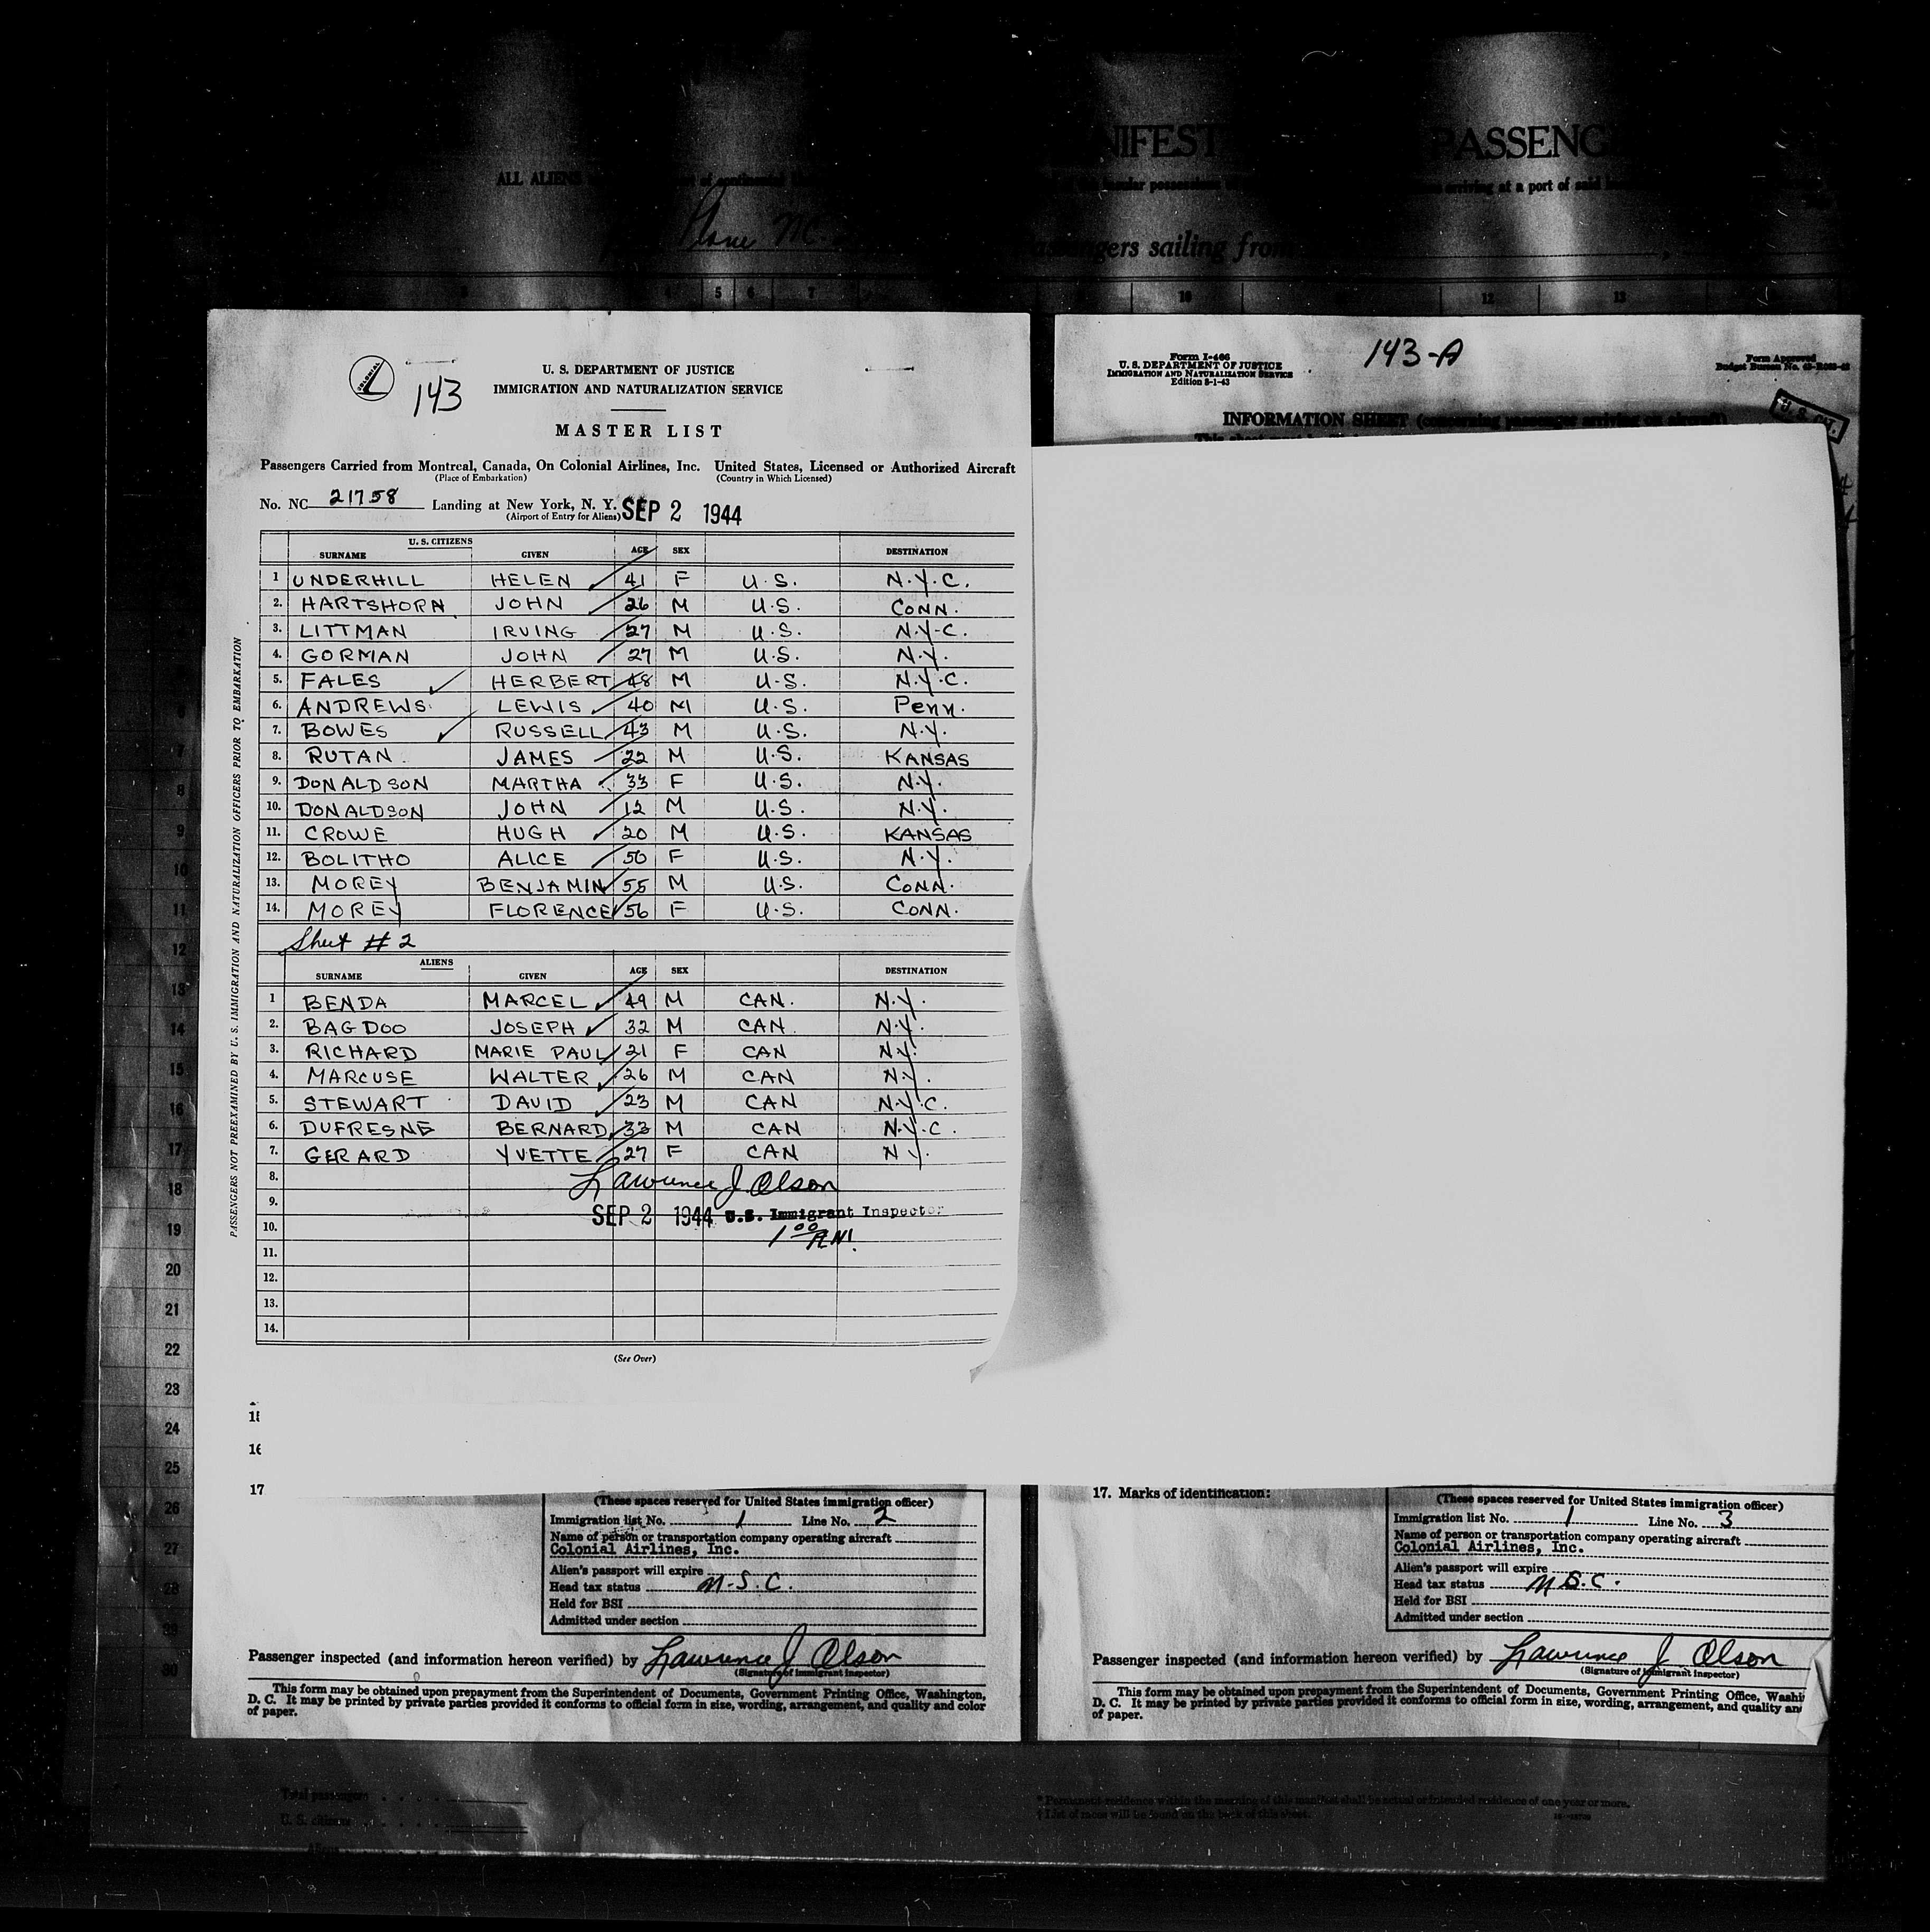 NIFEST PASSENG
ALL ALIENS
arriving at a port of said
Plane NC.
Passengers sailing from
3 4 5 6 7 10 12 13
COLONIAL
143
U. S. DEPARTMENT OF JUSTICE
IMMIGRATION AND NATURALIZATION SERVICE
MASTER LIST
Passengers Carried from Montreal, Canada, On Colonial Airlines, Inc. United States, Licensed or Authorized Aircraft
(Place of Embarkation) (Country in Which Licensed)
No. NC 21758 Landing at New York, N. Y. SEP 2 1944
(Airport of Entry for Aliens)
PASSENGERS NOT PREEXAMINED BY U. S. IMMIGRATION AND NATURALIZATION OFFICERS PRIOR TO EMBARKATION
U. S. CITIZENS
SURNAME GIVEN AGE SEX DESTINATION
1 UNDERHILL HELEN 41 F U.S. N.Y.C.
2. HARTSHORN JOHN 26 M U.S. CONN.
3. LITTMAN IRVING 27 M U.S. N.Y.C.
4. GORMAN JOHN 27 M U.S. N.Y.
5. FALES HERBERT 48 M U.S. N.Y.C.
6. ANDREWS LEWIS 40 M U.S. Penn.
7. BOWES RUSSELL 43 M U.S. N.Y.
8. RUTAN JAMES 22 M U.S. KANSAS
9. DONALDSON MARTHA 33 F U.S. N.Y.
10. DONALDSON JOHN 12 M U.S. N.Y.
11. CROWE HUGH 20 M U.S. KANSAS
12. BOLITHO ALICE 50 F U.S. N.Y.
13. MOREY BENJAMIN 55 M U.S. CONN.
14. MOREY FLORENCE 56 F U.S. CONN.
Sheet # 2
ALIENS
SURNAME GIVEN AGE SEX DESTINATION
1 BENDA MARCEL 49 M CAN. N.Y.
2. BAGDOO JOSEPH 32 M CAN. N.Y.
3. RICHARD MARIE PAUL 21 F CAN N.Y.
4. MARCUSE WALTER 26 M CAN N.Y.
5. STEWART DAVID 23 M CAN N.Y.C.
6. DUFRESNE BERNARD 33 M CAN N.Y.C.
7. GERARD YVETTE 27 F CAN N Y.
8. Lawrence J Olson
9.
SEP 2 1944 U.S. Immigrant Inspector
10.
1 00 A.M.
11.
12.
13.
14.
(See Over)
15
16
17
(These spaces reserved for United States immigration officer)
Immigration list No. 1 Line No. 2
Name of person or transportation company operating aircraft
Colonial Airlines, Inc.
Alien's passport will expire
Head tax status N.S.C.
Held for BSI
Admitted under section
Passenger inspected (and information hereon verified) by Lawrence J Olson
(Signature of immigrant inspector)
This form may be obtained upon prepayment from the Superintendent of Documents, Government Printing Office, Washington,
D. C. It may be printed by private parties provided it conforms to official form in size, wording, arrangement, and quality and color
of paper.
Form I-466
U. S. DEPARTMENT OF JUSTICE
IMMIGRATION AND NATURALIZATION SERVICE
Edition 8-1-43
143-A
Form Approved
Budget Bureau No.
INFORMATION SHEET (concerning passenger arriving on aircraft)
17. Marks of identification:
(These spaces reserved for United States immigration officer)
Immigration list No. 1 Line No. 3
Name of person or transportation company operating aircraft
Colonial Airlines, Inc.
Alien's passport will expire
Head tax status N.S.C.
Held for BSI
Admitted under section
Passenger inspected (and information hereon verified) by Lawrence J Olson
(Signature of immigrant inspector)
This form may be obtained upon prepayment from the Superintendent of Documents, Government Printing Office, Washi
D. C. It may be printed by private parties provided it conforms to official form in size, wording, arrangement, and quality an
of paper.
7
8
9
10
11
12
13
14
15
16
17
18
19
20
21
22
23
24
25
26
27
28
29
30
Total passengers
U. S. citizens
* Permanent residence within the meaning of this manifest shall be actual or intended residence of one year or more.
† List of races will be found on the back of this sheet.